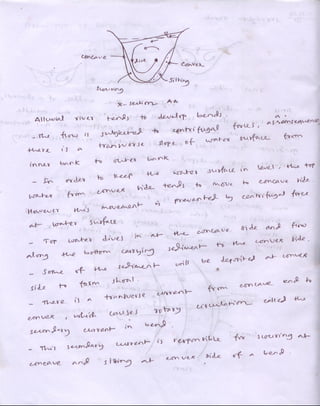 concave
convex
silting
scouring
x-section AA
Alluvial river tends to develop bends.
- The flow is subjected to centrifugal forces, as a consequence
there is a transverse slope of water surface from
inner bank to outer bank
- In order to keep the water surface in level, the top
water from convex side tends to move to concave side
However this movement is prevented by centrifugal force
at water surface.
- Top water dives in at the concave side and flow
along the bottom carrying sediment to the convex side.
- Some of the sediment will be deposited at convex
side to form shoal.
- There is a transverse current from concave end to
convex, which causes rotary circulation called the
secondary current in bend.
- This secondary current is responsible for scouring at
concave and silting at convex side of a bend.